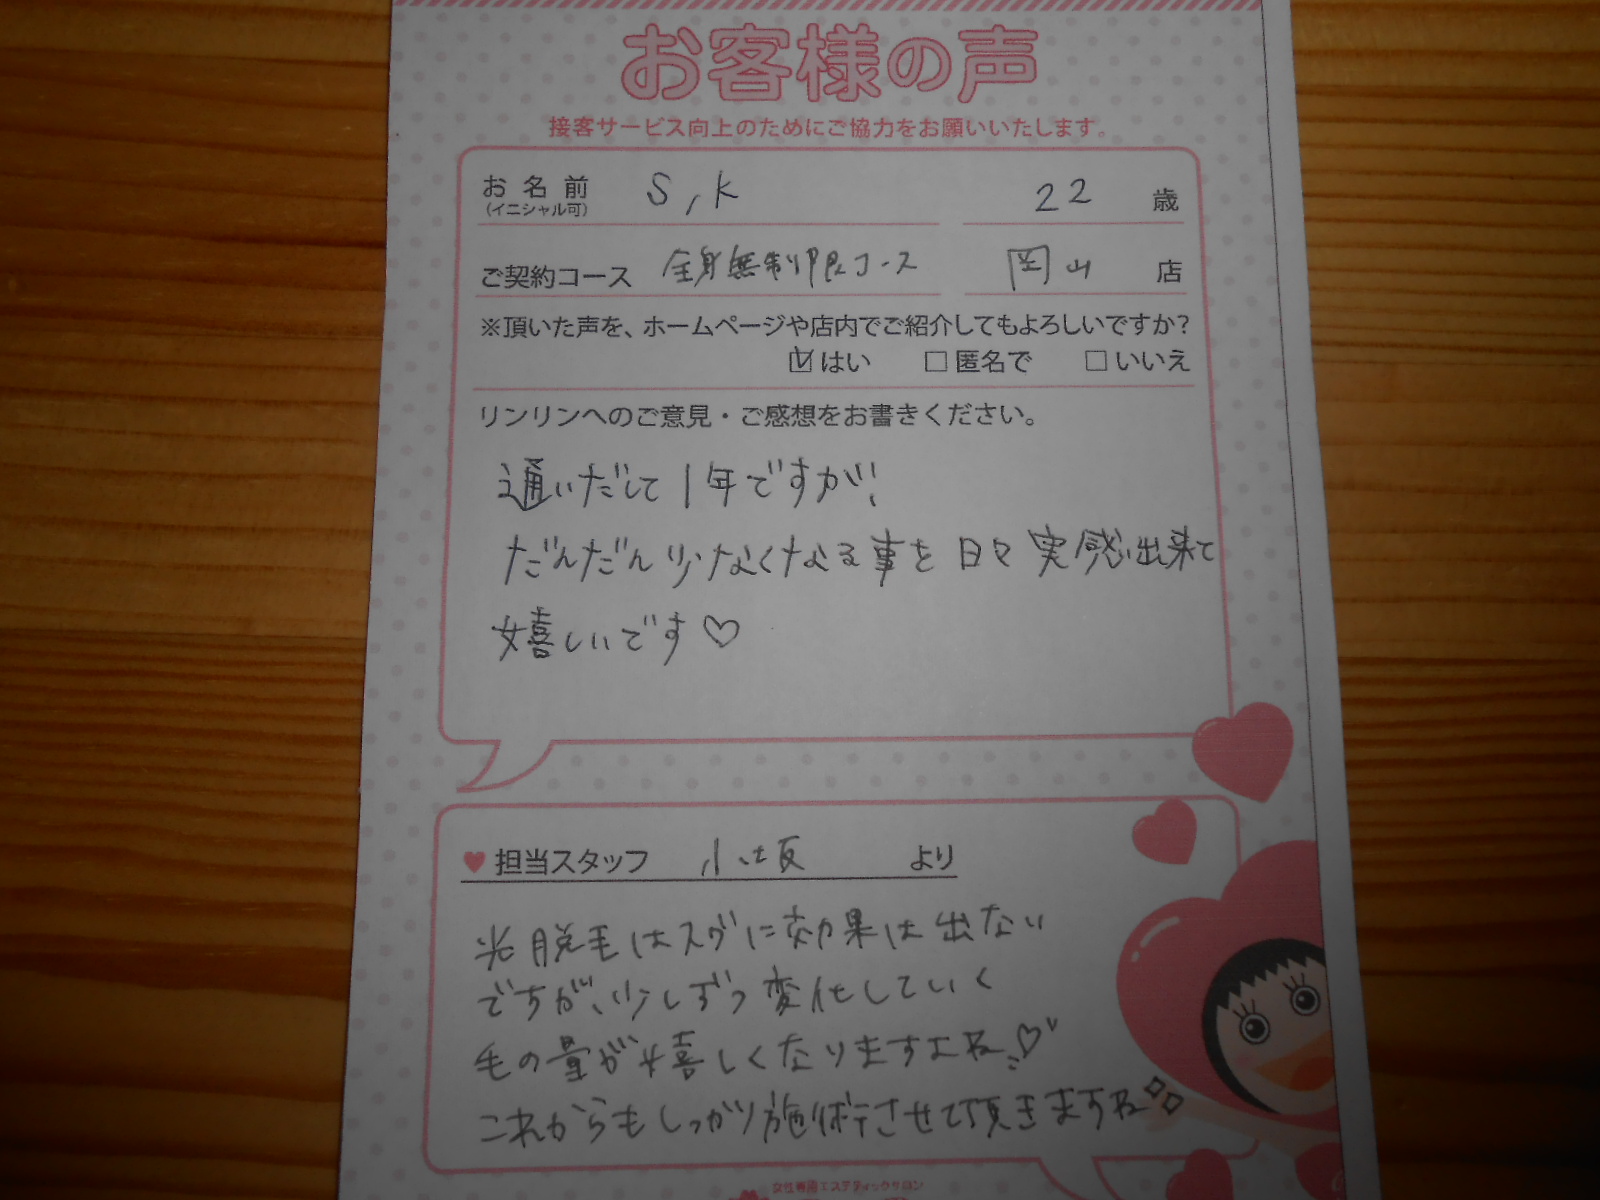 お客様の声
接客サービス向上のためにご協力をお願いいたします。
お名前 S,K 22 歳
(イニシャル可)
ご契約コース 全身無制限コース 岡山 店
※頂いた声を、ホームページや店内でご紹介してもよろしいですか?
☑はい □匿名で □いいえ
リンリンへのご意見・ご感想をお書きください。
通いだして1年ですが!
だんだん少なくなる事を日々実感出来て
嬉しいです♡
♥担当スタッフ 小坂 より
光脱毛はスグに効果は出ない
ですが、少しずつ変化していく
毛の量が嬉しくなりますよね♡
これからもしっかり施術させて頂きますね
女性専用エステティックサロン